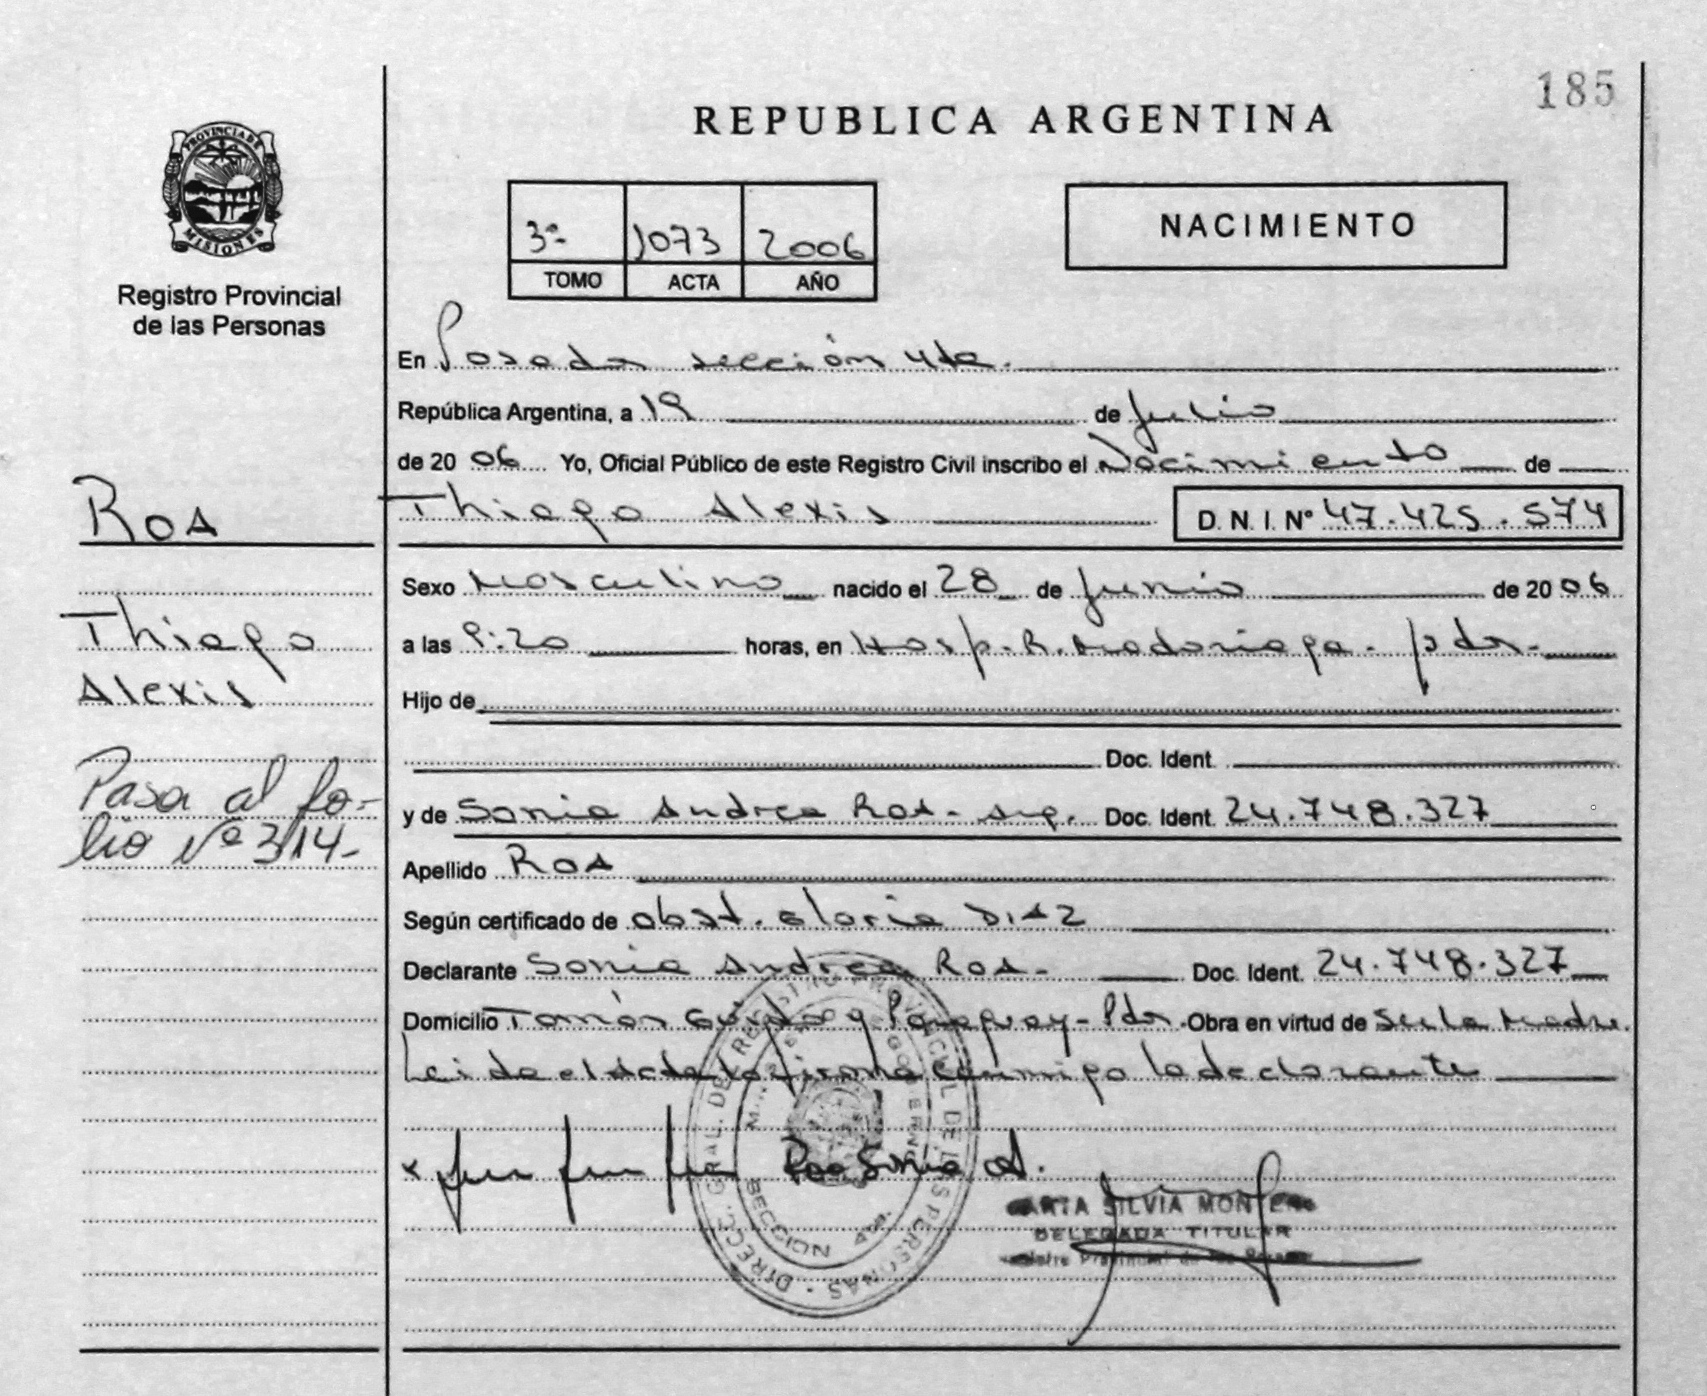 185
REPUBLICA ARGENTINA
PROVINCIA DE
MISIONES
Registro Provincial
de las Personas
3ª 1073 2006
TOMO ACTA AÑO
NACIMIENTO
En Posadas sección 4ta.
República Argentina, a 19 de Julio
de 20 06 Yo, Oficial Público de este Registro Civil inscribo el Nacimiento de
Thiago Alexis D.N.I. N° 47.425.574
Roa
Thiago
Alexis
Pasa al fo-
lio Nº 314-
Sexo Masculino nacido el 28 de Junio de 20 06
a las 9:20 horas, en Hosp. R. Madariaga - Pdas.
Hijo de
Doc. Ident.
y de Sonia Andrea Roa - arg. Doc. Ident. 24.748.327
Apellido ROA
Según certificado de obst. Gloria DIAZ
Declarante Sonia Andrea Roa - Doc. Ident. 24.748.327
Domicilio Tomás Guido y Paraguay - Pdas. Obra en virtud de ser la Madre.
Leida el acta la firma conmigo la declarante
x Roa Sonia A.
DIRECC. GRAL. DEL REGISTRO PROVINCIAL DE LAS PERSONAS
SECCION 4ta.
SILVIA
DELEGADA TITULAR